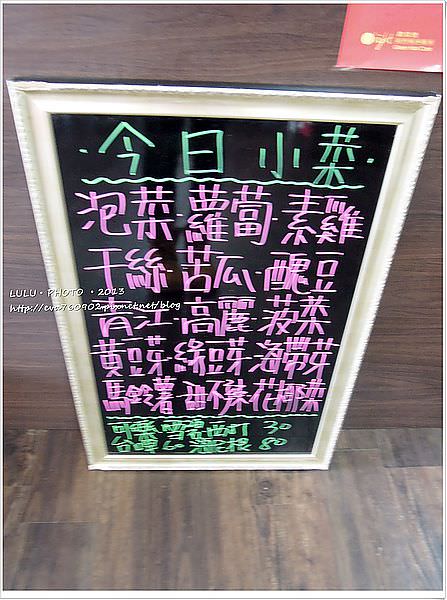 ·今日小菜·
泡菜·蘿蔔·素雞
干絲·苦瓜·醜豆
青江·高麗·菠菜
黃豆芽·綠豆芽·海帶芽
馬鈴薯·甜不辣·花椰菜
30
80
LULU·PHOTO·2013
http://eva760902.pixnet.net/blog